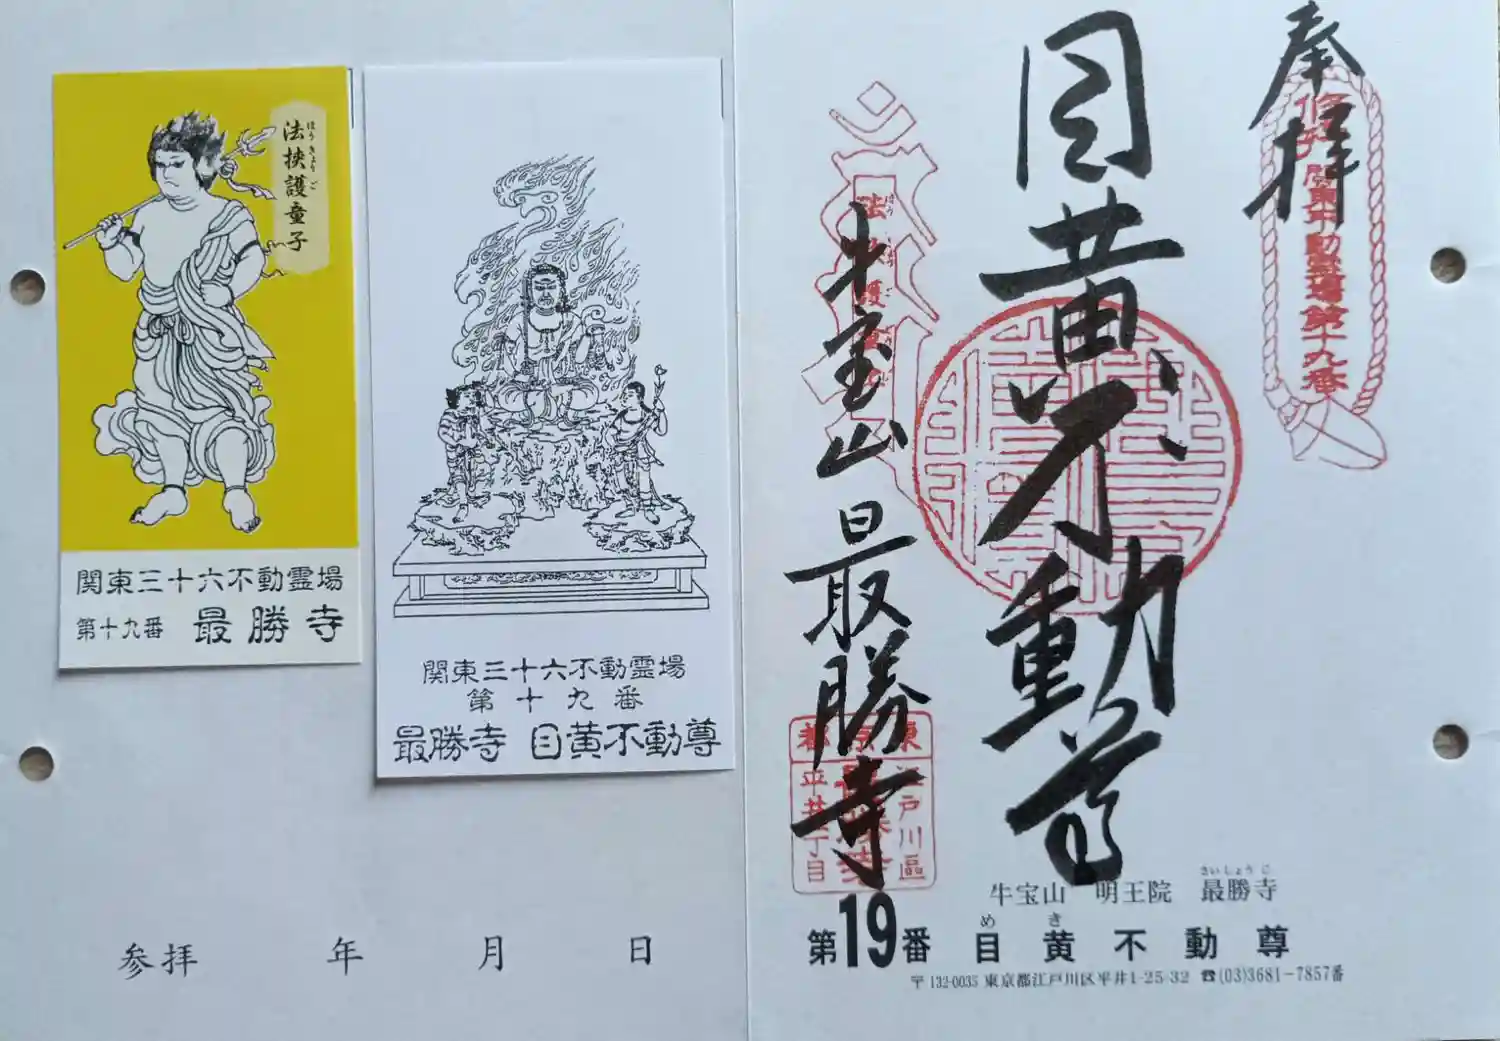 法挟護童子
ほうきょうご
関東三十六不動霊場
第十九番 最勝寺
関東三十六不動霊場
第十九番
最勝寺 目黄不動尊
参拝 年 月 日
奉拝
関東不動霊場第十九番
目黄不動尊
牛宝山 最勝寺
東京都
江戸川區
平井一丁目
さいしょうじ
牛宝山 明王院 最勝寺
めき
第19番 目黄不動尊
〒132-0035 東京都江戸川区平井1-25-32 ☎(03)3681-7857番